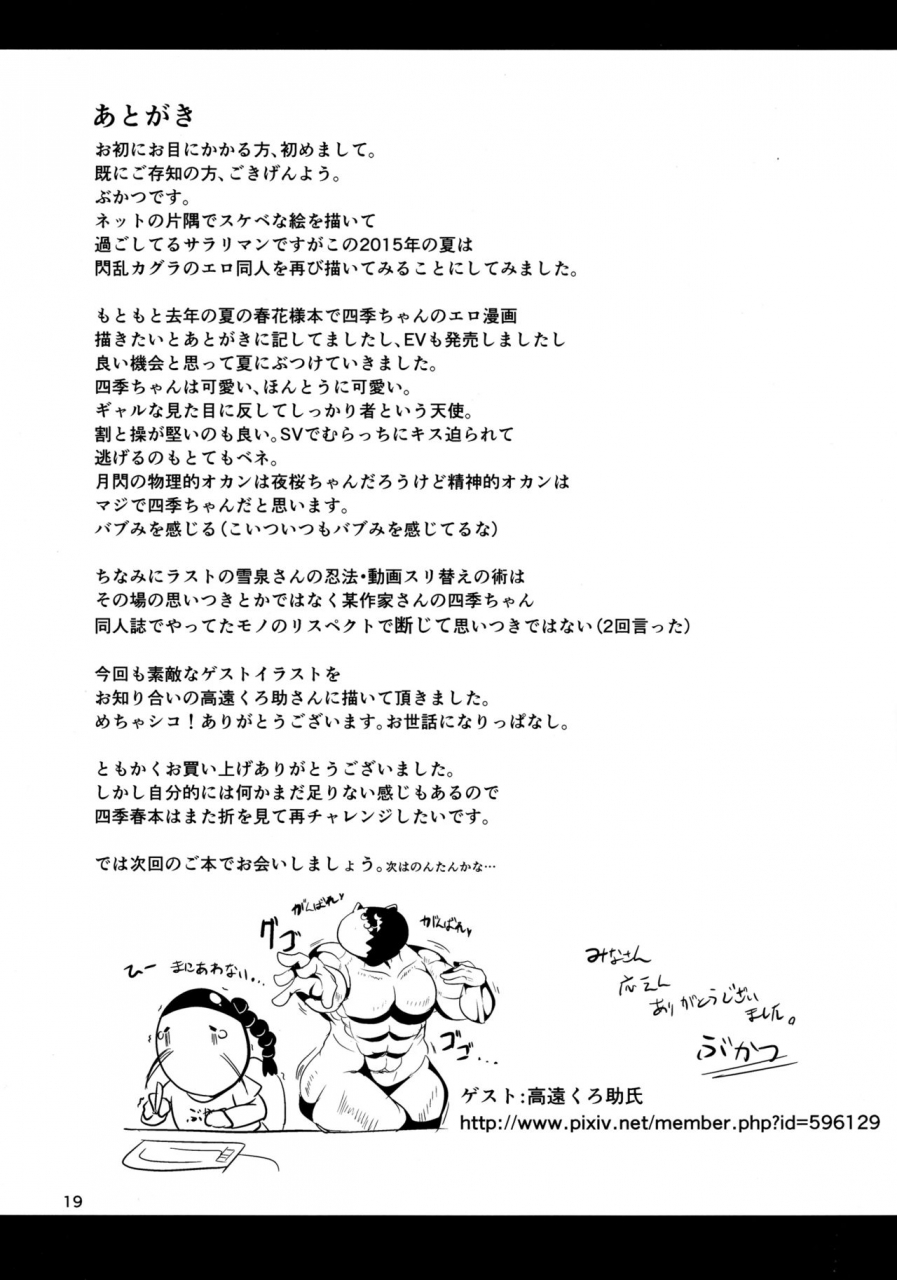 あとがき
お初にお目にかかる方、初めまして。
既にご存知の方、ごきげんよう。
ぶかつです。
ネットの片隅でスケベな絵を描いて
過ごしてるサラリマンですがこの2015年の夏は
閃乱カグラのエロ同人を再び描いてみることにしてみました。
もともと去年の夏の春花様本で四季ちゃんのエロ漫画
描きたいとあとがきに記してましたし、EVも発売しましたし
良い機会と思って夏にぶつけていきました。
四季ちゃんは可愛い、ほんとうに可愛い。
ギャルな見た目に反してしっかり者という天使。
割と操が堅いのも良い。SVでむらっちにキス迫られて
逃げるのもとてもベネ。
月閃の物理的オカンは夜桜ちゃんだろうけど精神的オカンは
マジで四季ちゃんだと思います。
バブみを感じる(こいついつもバブみを感じてるな)
ちなみにラストの雪泉さんの忍法・動画スリ替えの術は
その場の思いつきとかではなく某作家さんの四季ちゃん
同人誌でやってたモノのリスペクトで断じて思いつきではない(2回言った)
今回も素敵なゲストイラストを
お知り合いの高遠くろ助さんに描いて頂きました。
めちゃシコ!ありがとうございます。お世話になりっぱなし。
ともかくお買い上げありがとうございました。
しかし自分的には何かまだ足りない感じもあるので
四季春本はまた折を見て再チャレンジしたいです。
では次回のご本でお会いしましょう。次はのんたんかな…
がんばれ♥
がんばれ♥
グゴ
ひー まにあわない…
ゴゴ…
ぶか
みなさん
応えん
ありがとうござい
ました。
ぶかつ
ゲスト:高遠くろ助氏
http://www.pixiv.net/member.php?id=596129
19